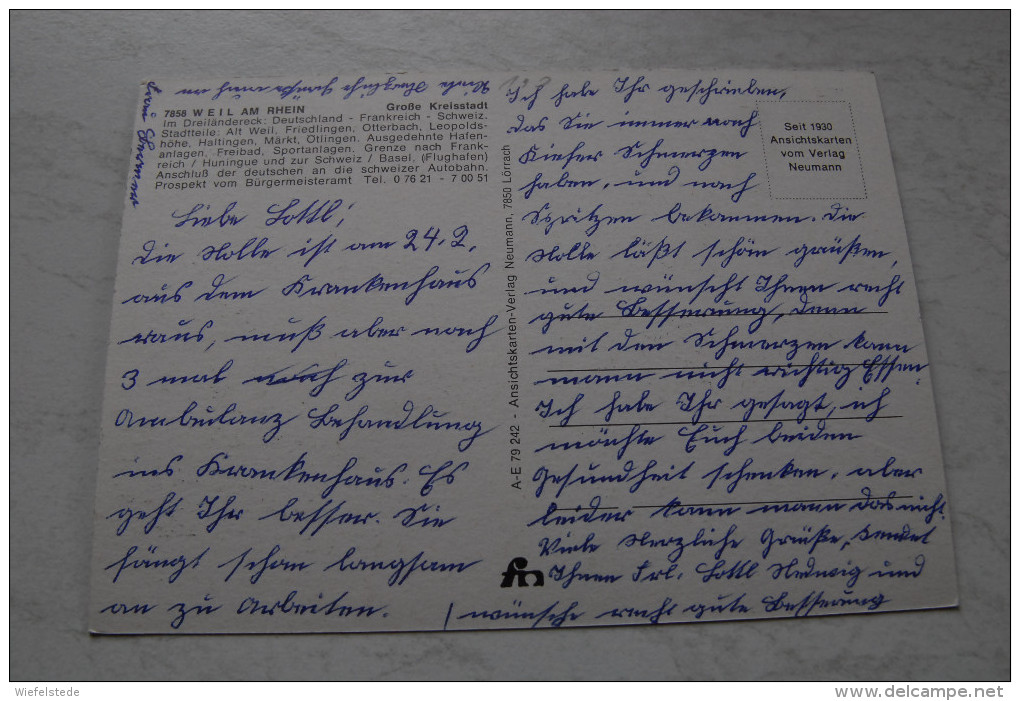 7858 WEIL AM RHEIN Große Kreisstadt
Im Dreiländereck: Deutschland - Frankreich - Schweiz.
Stadtteile: Alt Weil, Friedlingen, Otterbach, Leopolds-
höhe, Haltingen, Märkt, Ötlingen. Ausgedehnte Hafen-
anlagen. Freibad, Sportanlagen. Grenze nach Frank-
reich / Huningue und zur Schweiz / Basel, (Flughafen)
Anschluß der deutschen an die schweizer Autobahn.
Prospekt vom Bürgermeisteramt Tel. 0 76 21 - 7 00 51
Liebe Lottl!
Die Nolle ist am 24.2.
aus dem Krankenhaus
raus, muß aber noch
3 mal zur
Ambulanz Behandlung
ins Krankenhaus. Es
geht Ihr besser. Sie
fängt schon langsam
an zu Arbeiten.
A-E 79 242 - Ansichtskarten-Verlag Neumann, 7850 Lörrach
Seit 1930
Ansichtskarten
vom Verlag
Neumann
Ich habe Ihr geschrieben,
das Sie immer noch
Kiefer Schmerzen
haben, und noch
Spritzen bekommen. Die
Nolle läßt schön grüßen,
und wünscht Ihnen recht
gute Besserung, denn
mit den Schmerzen kann
mann nicht richtig Essen.
Ich habe Ihr gesagt, ich
möchte Euch beiden
Gesundheit schenken, aber
leider kann mann das nicht.
Viele Herzliche Grüße, sendet
Ihnen Frl. Lottl Hedwig und
wünsche recht gute Besserung
fm
Viele Herzliche Grüße auch
Wiefelstede
www.delcampe.net